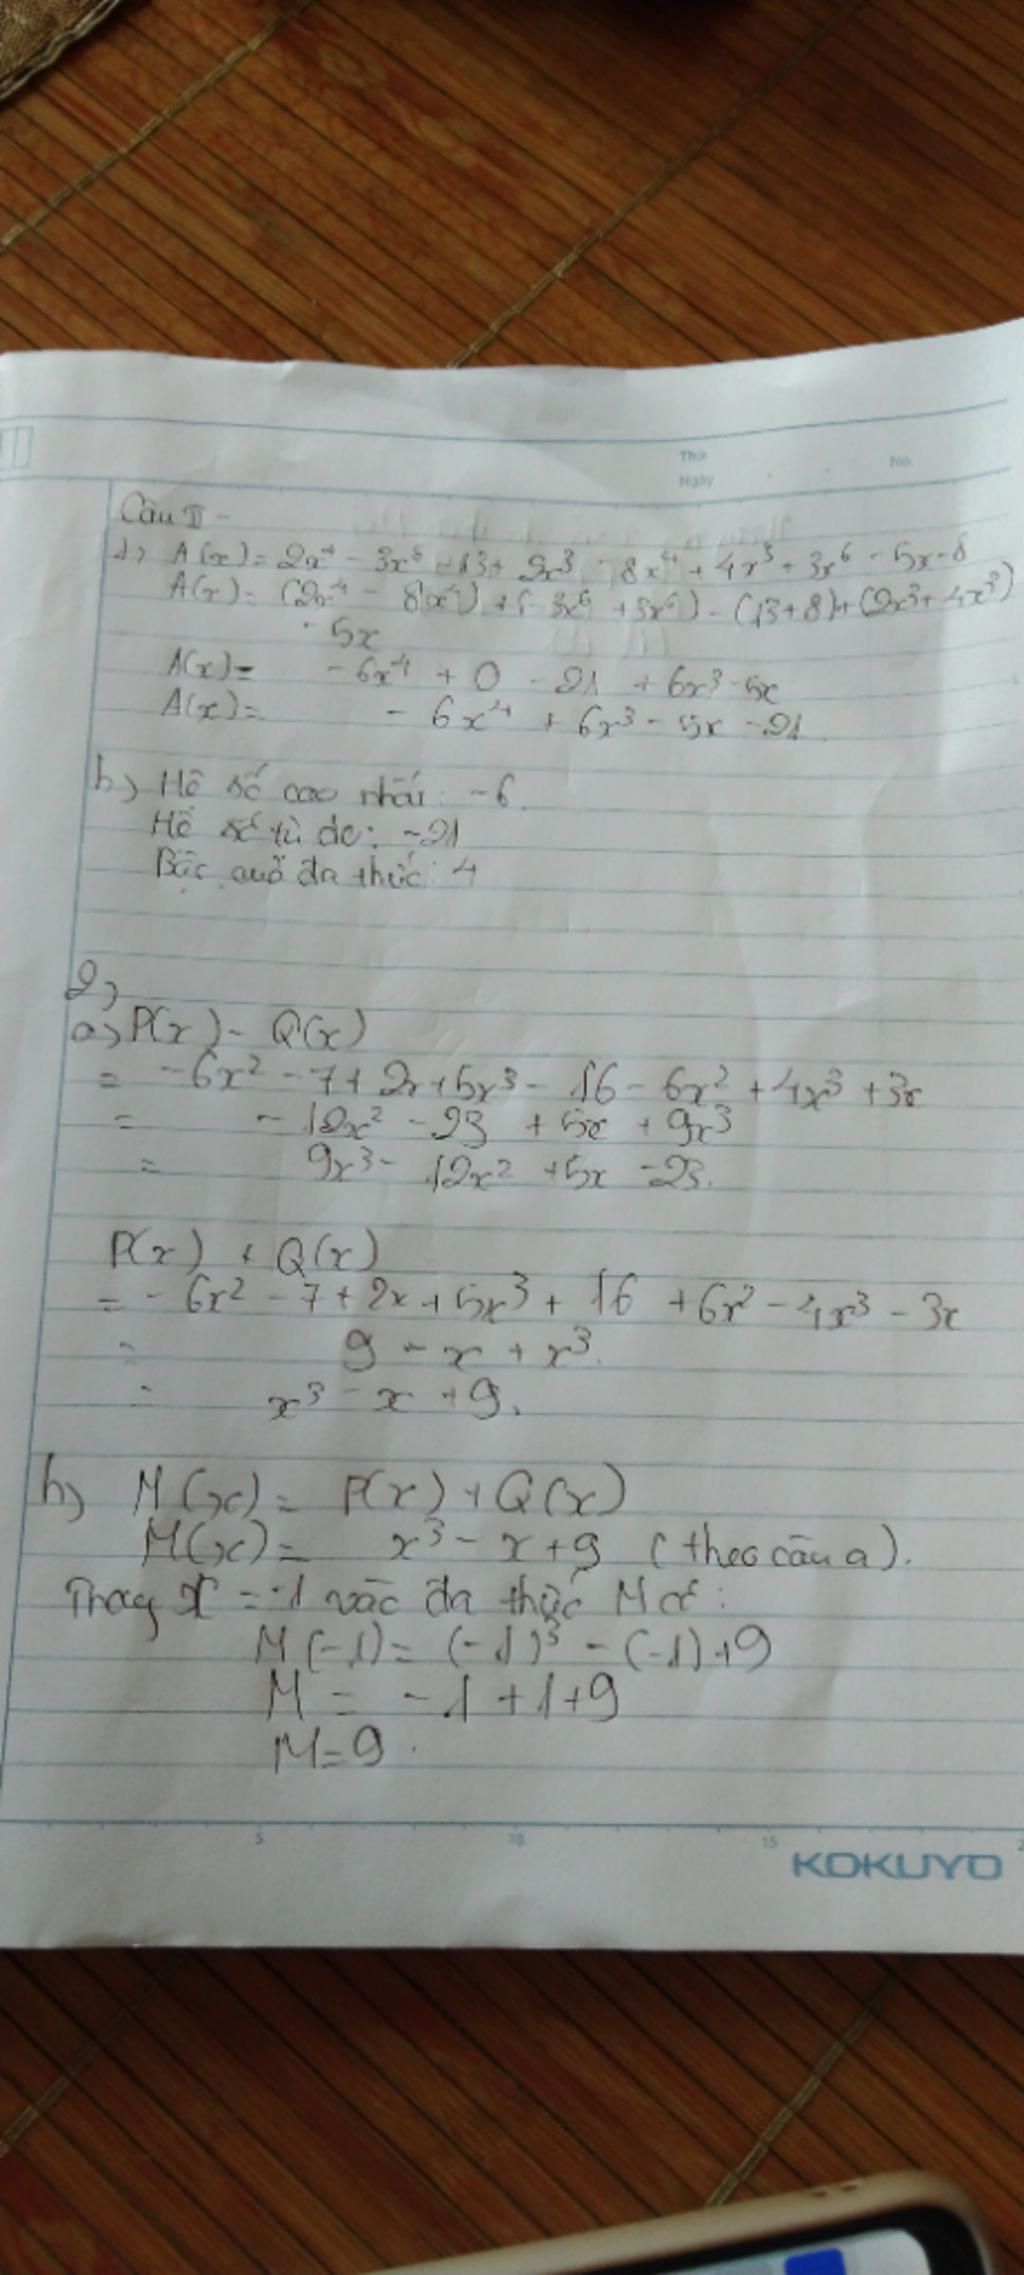 Thứ
No.
Ngày
Câu II -
1, A(x) = 2x⁴ - 3x⁶ - 13 + 2x³ - 8x⁴ + 4x³ + 3x⁶ - 5x - 8
A(x) = (2x⁴ - 8x⁴) + (-3x⁶ + 3x⁶) - (13 + 8) + (2x³ + 4x³)
- 5x
A(x) = - 6x⁴ + 0 - 21 + 6x³ - 5x
A(x) = - 6x⁴ + 6x³ - 5x - 21.
b, Hệ số cao nhất: -6.
Hệ số tự do: -21
Bậc đa thức: 4
2,
a, P(x) - Q(x)
= -6x² - 7 + 2x + 5x³ - 16 - 6x² + 4x³ + 3x
= - 12x² - 23 + 5x + 9x³
= 9x³ - 12x² + 5x - 23.
P(x) + Q(x)
= - 6x² - 7 + 2x + 5x³ + 16 + 6x² - 4x³ - 3x
= 9 - x + x³.
= x³ - x + 9.
b, M(x) = P(x) + Q(x)
M(x) = x³ - x + 9 (theo câu a).
Thay x = -1 vào đa thức M có:
M(-1) = (-1)³ - (-1) + 9
M = - 1 + 1 + 9
M = 9.
5 10 15 2
KOKUYO